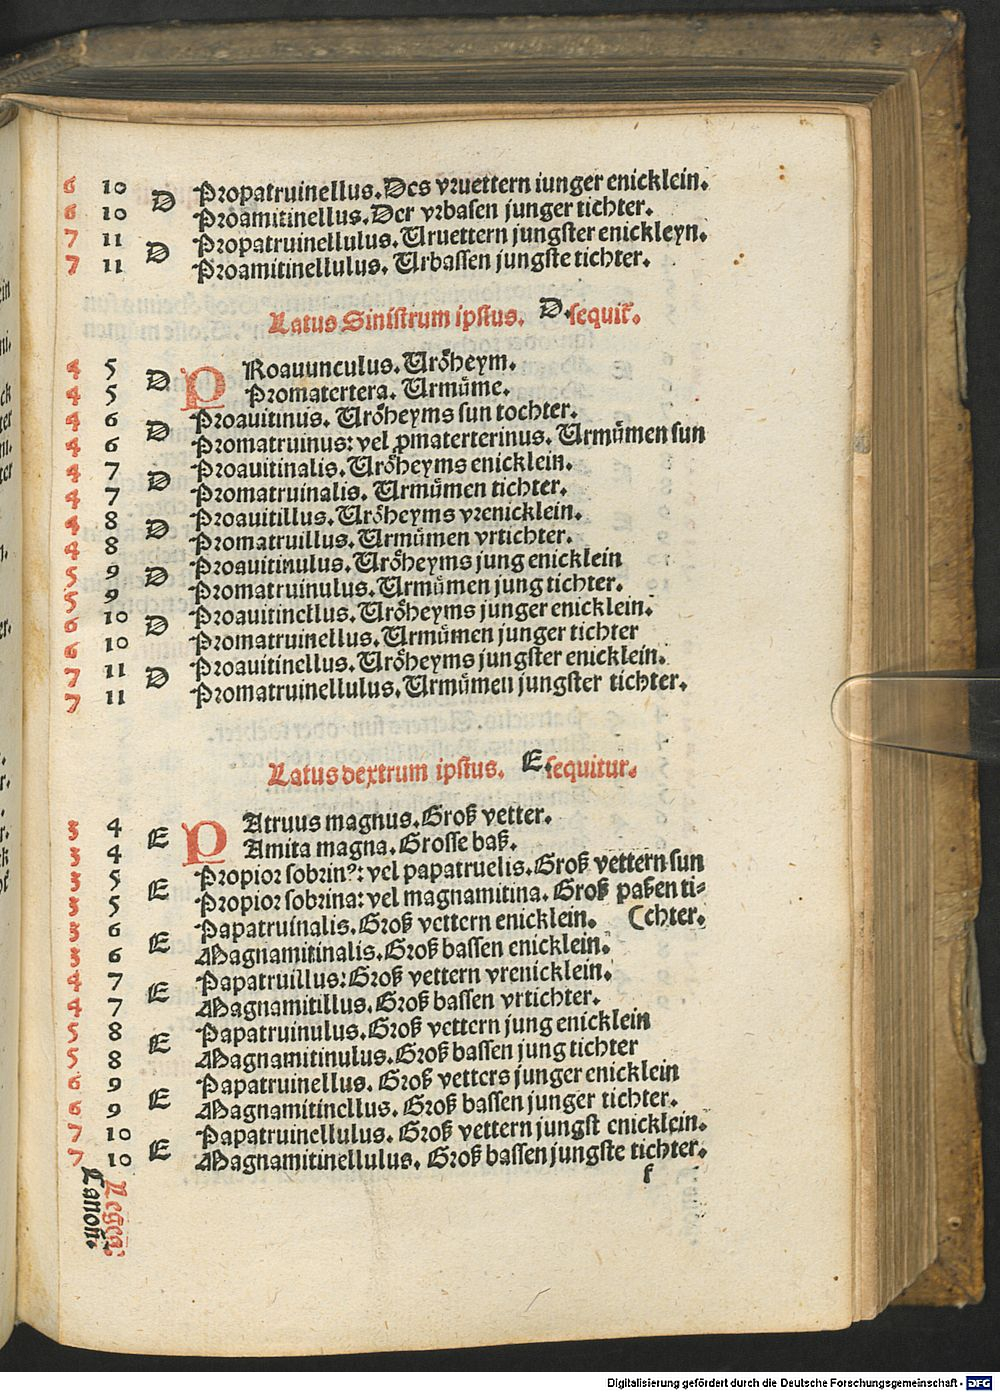 6 10 D Propatruinellus. Des vruettern iunger enicklein.
6 10 Proamitinellus. Der vrbasen junger tichter.
7 11 D Propatruinellulus. Uruettern jungster enickleyn.
7 11 Proamitinellulus. Urbassen jungste tichter.
Latus Sinistrum ipsius. D. sequit᷑.
4 5 D PRoauunculus. Uröheym.
4 5 Promatertera. Urmůme.
4 6 D Proauitinus. Uröheyms sun tochter.
4 6 Promatruinus: vel ꝓmaterterinus. Urmůmen sun
4 7 D Proauitinalis. Uröheyms enicklein.
4 7 Promatruinalis. Urmůmen tichter.
4 8 D Proauitillus. Uröheyms vrenicklein.
4 8 Promatruillus. Urmůmen vrtichter.
5 9 D Proauitinulus. Uröheyms jung enicklein
5 9 Promatruinulus. Urmůmen jung tichter.
6 10 D Proauitinellus. Uröheyms junger enicklein.
6 10 Promatruinellus. Urmůmen junger tichter
7 11 D Proauitinellus. Uröheyms jungster enicklein.
7 11 Promatruinellulus. Urmůmen jungster tichter.
Latus dextrum ipsius. E. sequitur.
3 4 E PAtruus magnus. Groß vetter.
3 4 Amita magna. Grosse baß.
3 5 E Propior sobrinꝰ: vel papatruelis. Groß vettern sun
3 5 Propior sobrina: vel magnamitina. Groß paßen ti-
3 6 E Papatruinalis. Groß vettern enicklein. (chter.
3 6 Magnamitinalis. Groß bassen enicklein.
4 7 E Papatruillus: Groß vettern vrenicklein.
4 7 Magnamitillus. Groß bassen vrtichter.
5 8 E Papatruinulus. Groß vettern jung enicklein
5 8 Magnamitinulus. Groß bassen jung tichter
6 9 E Papatruinellus. Groß vetters junger enicklein
6 9 Magnamitinellus. Groß bassen junger tichter.
7 10 E Papatruinellulus. Groß vettern jungst enicklein.
7 10 Magnamitinellulus. Groß bassen jungste tichter.
f
Canoñ.
Digitalisierung gefördert durch die Deutsche Forschungsgemeinschaft - DFG